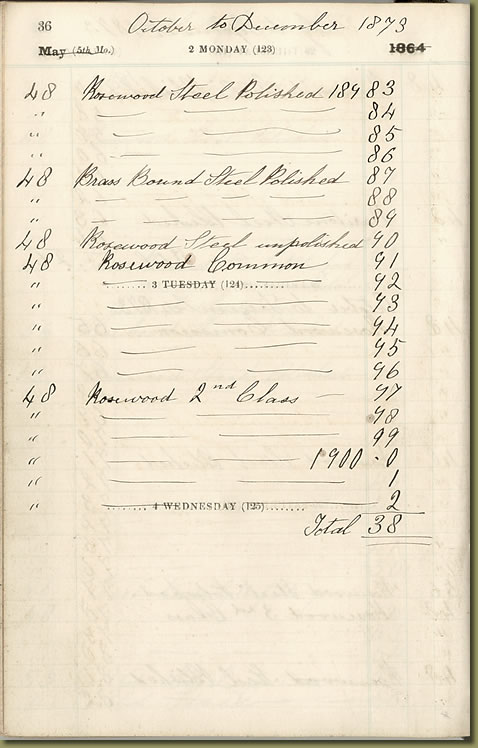 36 October to December 1873
May (5th Mo.) 2 MONDAY (123) 1864
48 Rosewood Steel Polished 189 83
" — — 84
" — — 85
" — — 86
48 Brass Bound Steel Polished 87
" — — — — 88
" — — — — 89
48 Rosewood Steel unpolished 90
48 Rosewood Common 91
" — — 92
3 TUESDAY (124)
" — — 93
" — — 94
" — — 95
" — — 96
48 Rosewood 2nd Class — 97
" — — 98
" — — 99
" — — 1900 · 0
" — — 1
" — — 2
4 WEDNESDAY (125)
Total 38